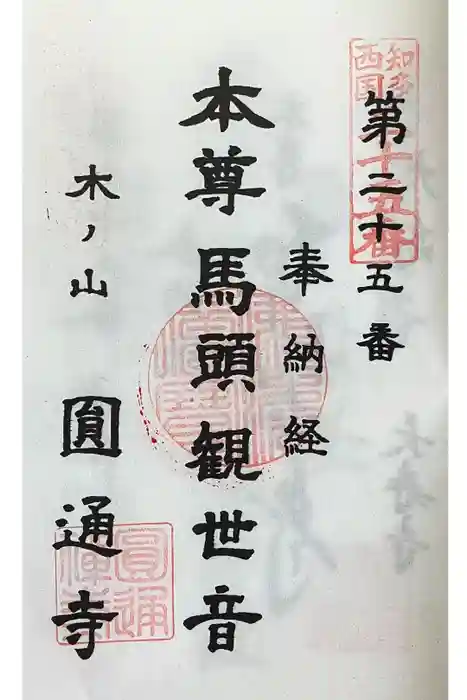 第二十五番
知多
西国
十五番
奉納経
本尊馬頭観世音
木ノ山 圓通寺
圓通
禅寺